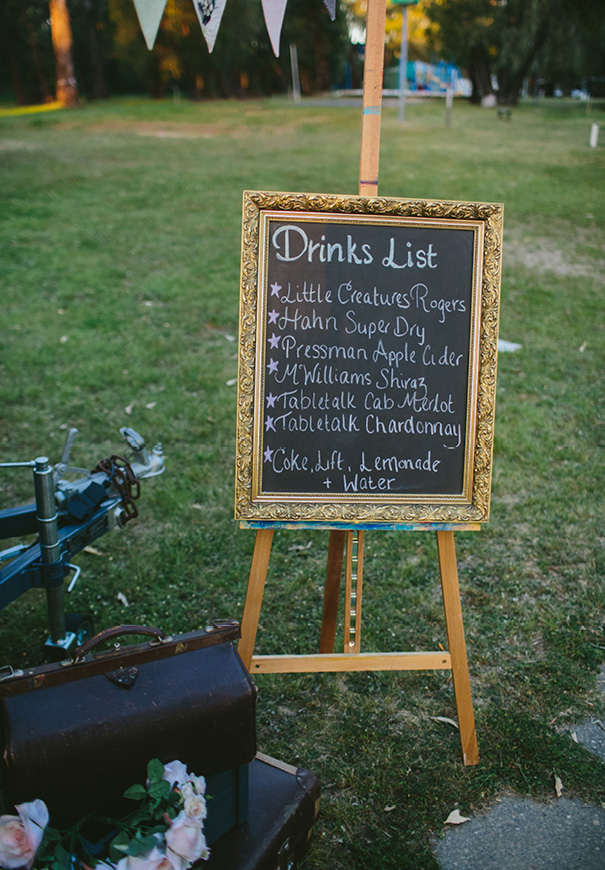 Drinks List
Little Creatures Rogers
Hahn Super Dry
Pressman Apple Cider
McWilliams Shiraz
Tabletalk Cab Merlot
Tabletalk Chardonnay
Coke, Lift, Lemonade
+ Water